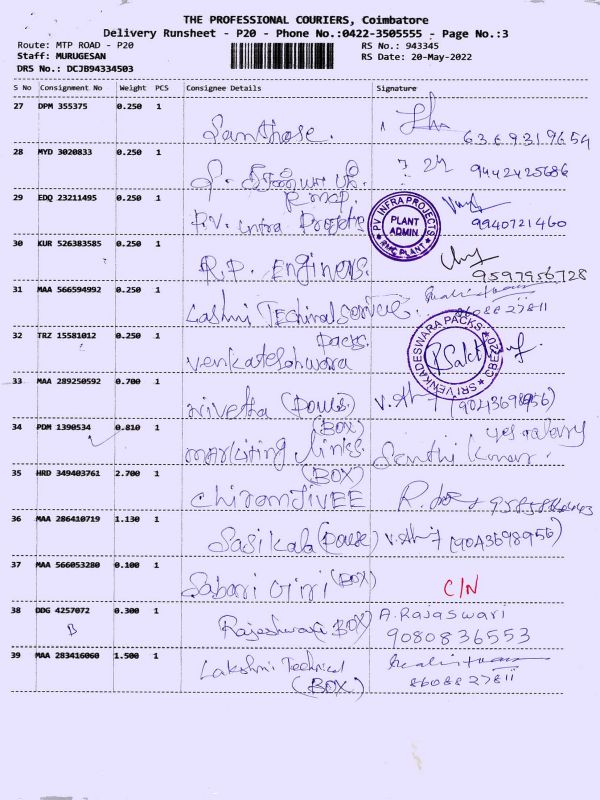 THE PROFESSIONAL COURIERS, Coimbatore
Delivery Runsheet - P20 - Phone No.:0422-3505555 - Page No.:3
Route: MTP ROAD - P20 RS No.: 943345
Staff: MURUGESAN RS Date: 20-May-2022
DRS No.: DCJB94334503
S No Consignment No Weight PCS Consignee Details Signature
27 DPM 355375 0.250 1
Santhose. 6369319654
28 MYD 3020833 0.250 1
9442425686
29 EDQ 23211495 0.250 1
P.V. infra Projects 9940721460
PV INFRA PROJECTS
PLANT
ADMIN.
RMC PLANT
30 KUR 526383585 0.250 1
R.P. Engineers. 9597956728
31 MAA 566594992 0.250 1
Lashmi Technical service. 8608827811
32 TRZ 15581012 0.250 1
Packs.
Venkateshwara
SRI VENKADESWARA PACKS
33 MAA 289250592 0.700 1
Nivetha (9043698956)
34 PDM 1390534 0.810 1
(BOX)
Marketing links. Senthil Kumar.
35 HRD 349403761 2.700 1
(BOX)
CHIRANJIVEE
36 MAA 286410719 1.130 1
Sasikala (9043698956)
37 MAA 566053280 0.100 1
Sabari Giri (BOX) C/N
38 DDG 4257072 0.300 1
B Rajeshwari BOX) A.Rajaswari
9080836553
39 MAA 283416060 1.500 1
Lakshmi Technical
(BOX) 8608827811